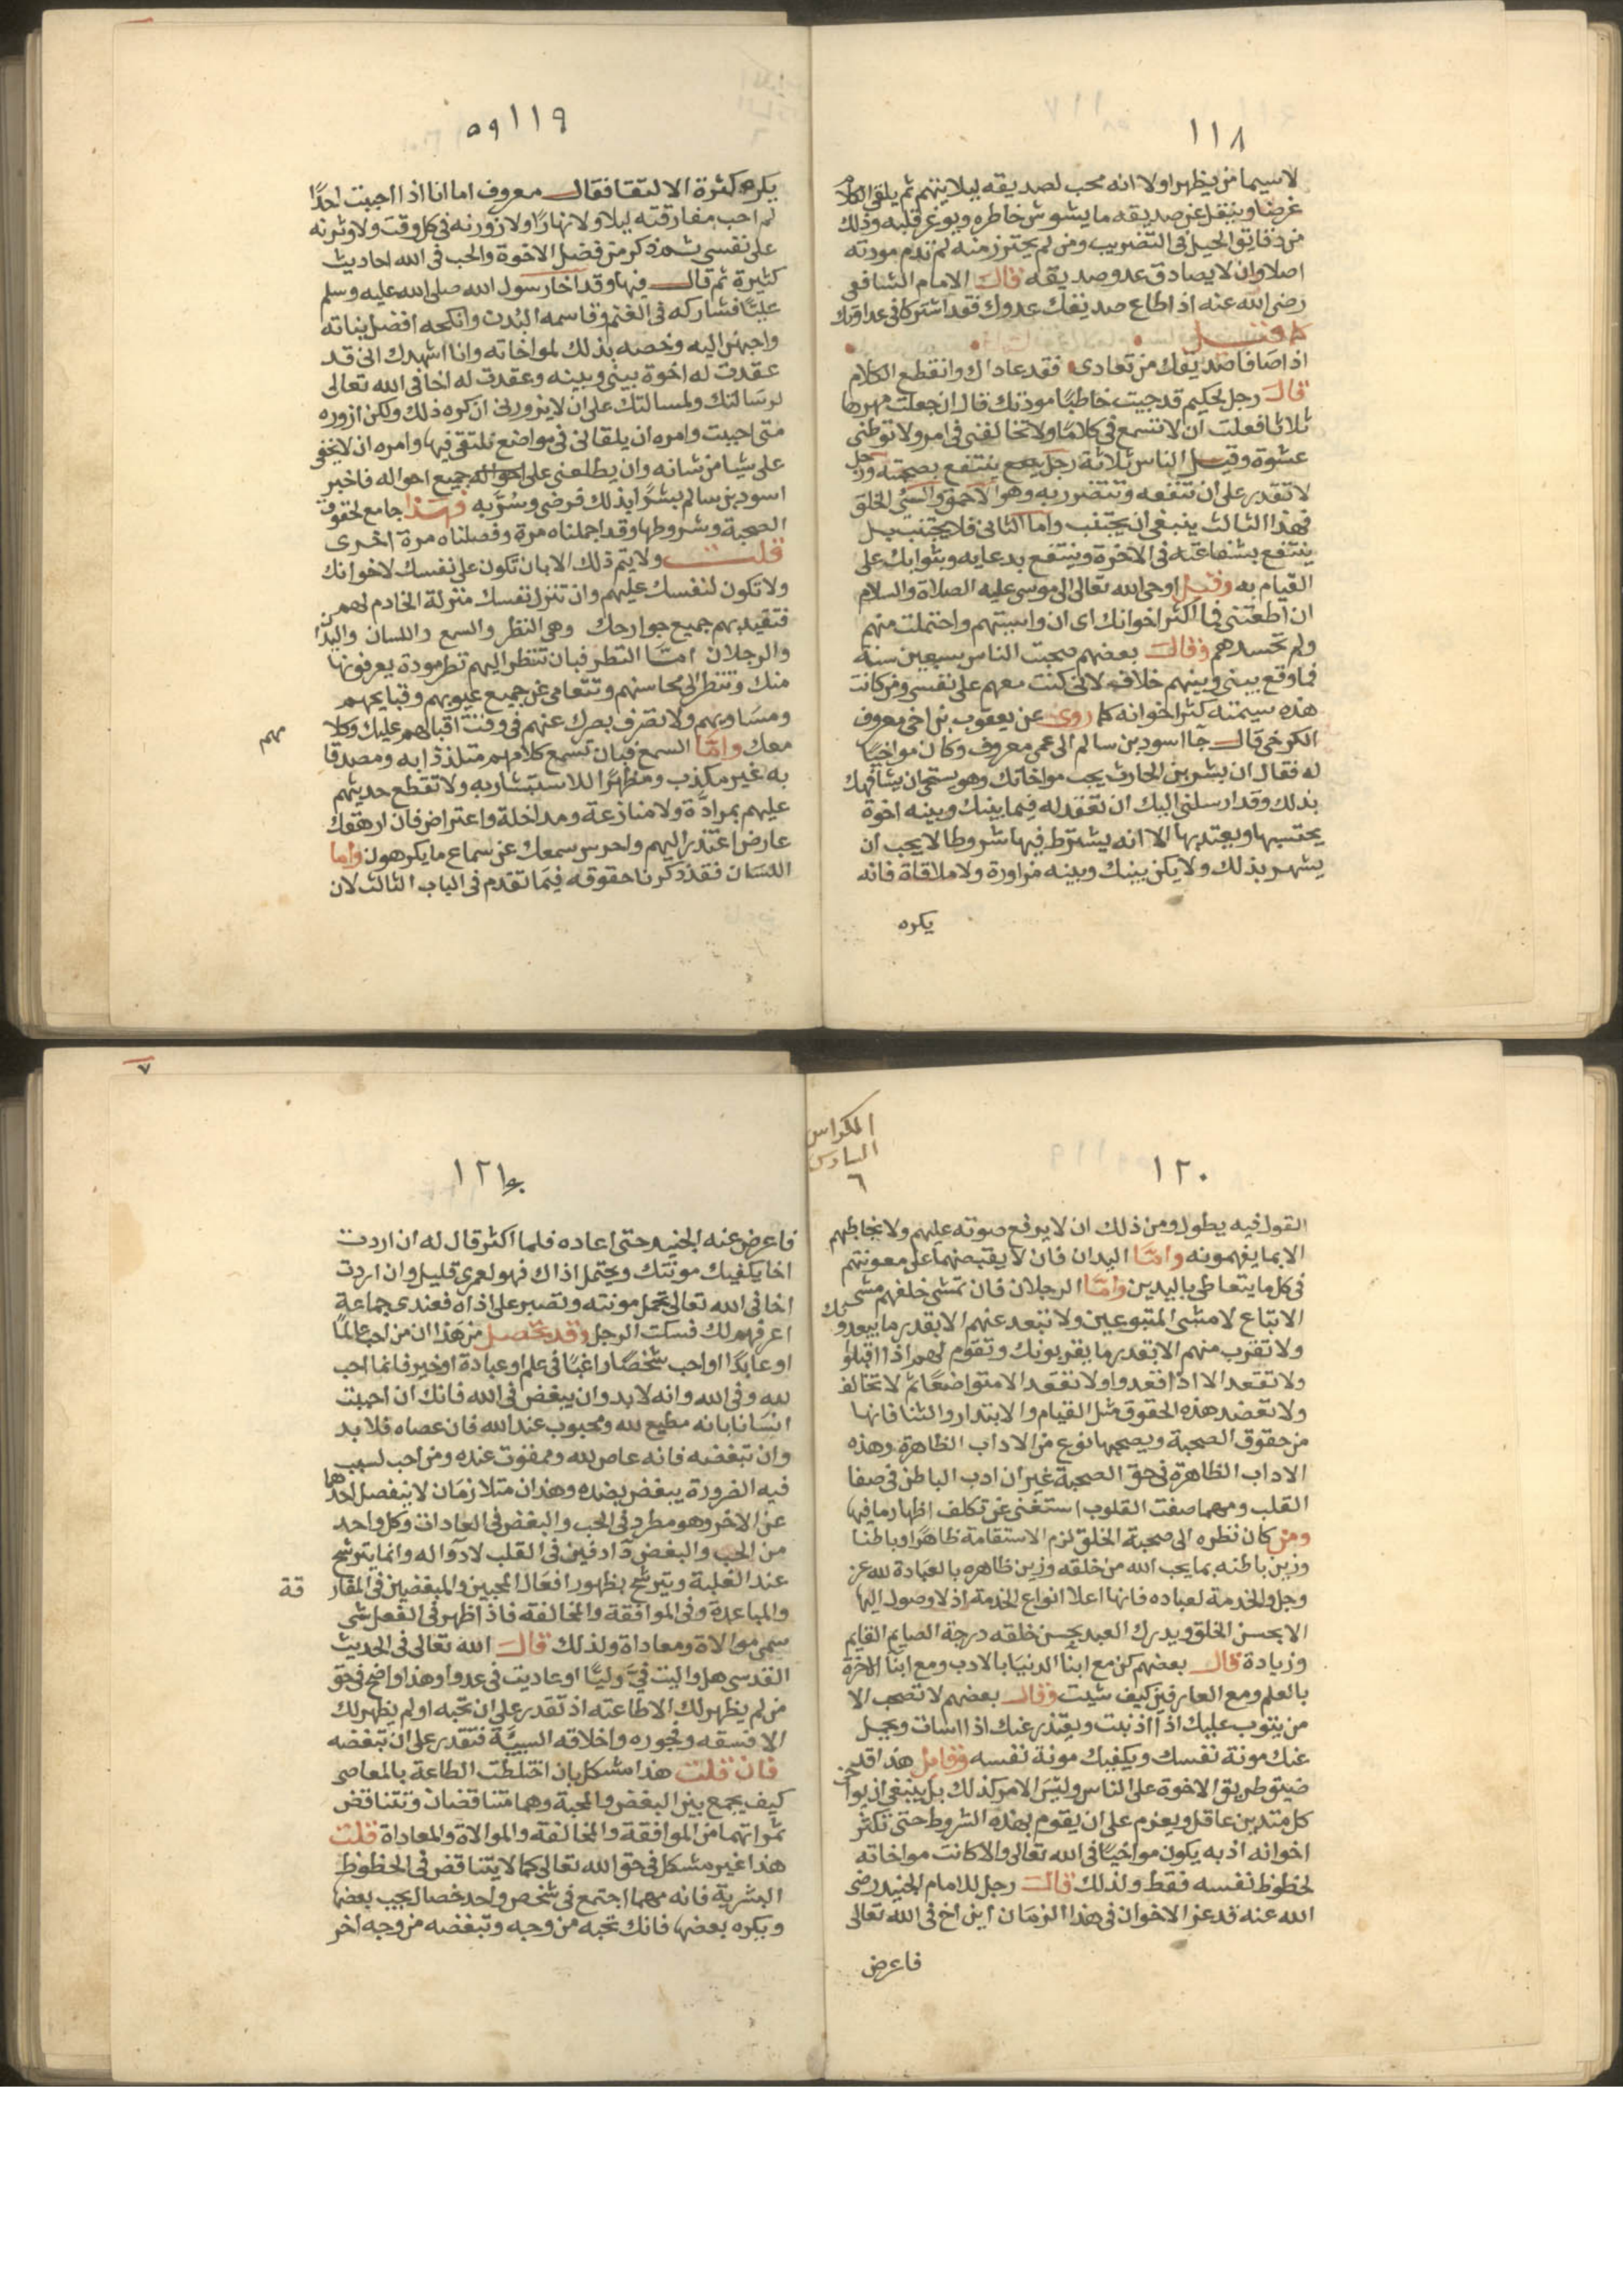 ١١٨
لاسيما من يظهر اولا انه محب لصديقه ليلا يتهم ثم يلقي الكلام
عرضا وينقل عن صديقه ما يشوش خاطره ويوغر قلبه وذلك
من دقايق الحيل في التضريب ومن لم يحترز منه لم تدم مودته
اصلا وان لا يصادق عدو صديقه قال الامام الشافعي
رضي الله عنه اذا اطاع صديقك عدوك فقد اشتركا في عداوتك
كما قيل
اذا صافا صديقك من تعادى فقد عاداك وانقطع الكلام
قال رجل لحكيم قد جيت خاطبا مودتك قال ان جعلت مهرها
ثلاثا فعلت ان لا تسمع في كلاما ولا تخالفني في امر ولا توطني
عشوة وقيل الناس ثلاثة رجل ينتفع بصحبته ورجل
لا تقدر على ان تنفعه وتتضرر به وهو الاحمق والسيئ الخلق
فهذا الثالث ينبغي ان يجتنب واما الثاني فلا يجتنب بل
ينتفع بشفاعته في الاخرة وينتفع بدعايه وبثوابك على
القيام به وقيل اوحى الله تعالى الى موسى عليه الصلاة والسلام
ان اطعتني في اكثر اخوانك اي ان واسيتهم واحتملت منهم
ولم تحسدهم وقال بعضهم صحبت الناس سبعين سنة
فما وقع بيني وبينهم خلاف لاني كنت معهم على نفسي ومن كانت
هذه سيمته كثر اخوانه كما روي عن يعقوب بن اخي معروف
الكرخي قال جا اسود بن سالم الى عمي معروف وكان مواخيا
له فقال ان بشر بن الحارث يحب مواخاتك وهو يستحي ان يشافهك
بذلك وقد ارسلني اليك ان تعقد له فيما بينك وبينه اخوة
يحتسبها ويعتد بها الا انه يشترط فيها شروطا لا يحب ان
يشهر بذلك ولا يكن بينك وبينه مزاورة ولا ملاقاة فانه
يكره
١١٩ ٥٩
يكره كثرة الالتقا فقال معروف اما انا اذا احببت احدا
لم احب مفارقته ليلا ولا نهارا ولا زورنه في كل وقت ولاوثرنه
على نفسي ثم ذكر من فضل الاخوة والحب في الله احاديث
كثيرة ثم قال فيها وقد اخا رسول الله صلى الله عليه وسلم
عليا فشاركه في الغنم وقاسمه البدن وانكحه افضل بناته
واحبهن اليه وخصه بذلك لمواخاته وانا اشهدك اني قد
عقدت له اخوة بيني وبينه وعقدت له اخا في الله تعالى
لرسالتك ولمسالتك على ان لا يزورني ان كره ذلك ولكن ازوره
متى احببت وامره ان يلقاني في مواضع نلتقي فيها وامره ان لا يخفي
على شيا من شانه وان يطلعني على جميع احواله فاخبر
اسود بن سالم بشرا بذلك فرضي وسر به فهذا جامع لحقوق
الصحبة وشروطها وقد اجملناه مرة وفصلناه مرة اخرى
قلت ولا يتم ذلك الا بان تكون على نفسك لاخوانك
ولا تكون لنفسك عليهم وان تنزل نفسك منزلة الخادم لهم
فتقيد بهم جميع جوارحك وهي النظر والسمع واللسان واليدان
والرجلان اما النظر فبان تنظر اليهم نظر مودة يعرفونها
منك وتنظر الى محاسنهم وتتعامى عن جميع عيوبهم وقبايحهم
ومساويهم ولا تصرف بصرك عنهم في وقت اقبالهم عليك وكلامهم
معك واما السمع فبان تسمع كلامهم متلذذا به ومصدقا
به غير مكذب ومظهرا للاستبشار به ولا تقطع حديثهم
عليهم بمرادة ولا منازعة ومداخلة واعتراض فان ارهقك
عارض اعتذر اليهم واحرس سمعك عن سماع ما يكرهون واما
اللسان فقد ذكرنا حقوقه فيما تقدم في الباب الثالث لان
الكراس
السادس
٦
١٢٠
القول فيه يطول ومن ذلك ان لا يرفع صوته عليهم ولا يخاطبهم
الا بما يفهمونه واما اليدان فان لا يقبضهما على معونتهم
في كل ما يتعاطى باليدين واما الرجلان فان تمشي خلفهم مشي
الاتباع لا مشي المتبوعين ولا تبعد عنهم الا بقدر ما يبعدونك
ولا تقرب منهم الا بقدر ما يقربونك وتقوم لهم اذا اقبلوا
ولا تقعد الا اذا قعدوا ولا تقعد الا متواضعا ثم لا تخالف
ولا تعضد هذه الحقوق مثل القيام والابتدار والثنا فانها
من حقوق الصحبة ويصحبها نوع من الاداب الظاهرة وهذه
الاداب الظاهرة في حق الصحبة غير ان ادب الباطن في صفا
القلب ومهما صفت القلوب استغنى عن تكلف اظهار ما فيها
ومن كان نظره الى صحبة الخلق لزم الاستقامة ظاهرا وباطنا
وزين باطنه بما يحب الله من خلقه وزين ظاهره بالعبادة لله عز
وجل والخدمة لعباده فانها اعلا انواع الخدمة اذ لا وصول اليها
الا بحسن الخلق ويدرك العبد بحسن خلقه درجة الصايم القايم
وزيادة قال بعضهم كن مع ابنا الدنيا بالادب ومع ابنا الاخرة
بالعلم ومع العارفين كيف شيت وقال بعضهم لا تصحب الا
من يتوب عليك اذا اذنبت ويعتذر عنك اذا اسات ويحمل
عنك مونة نفسك ويكفيك مونة نفسه وقايل هذا قد
ضيق طريق الاخوة على الناس وليس الامر كذلك بل ينبغي ان يواخي
كل متدين عاقل ويعزم على ان يقوم بهذه الشروط حتى تكثر
اخوانه اذ به يكون مواخيا في الله تعالى والا كانت مواخاته
لحظوظ نفسه فقط ولذلك قال رجل للامام الجنيد رضي
الله عنه قد عز الاخوان في هذا الزمان اين اخ في الله تعالى
فاعرض
٧
١٢١
فاعرض عنه الجنيد حتى اعاده فلما اكثر قال له ان اردت
اخا يكفيك مونتك ويحتمل اذاك فهو لعمري قليل وان اردت
اخا في الله تعالى تحمل مونته وتصبر على اذاه فعندي جماعة
اعرفهم لك فسكت الرجل وقد تحصل من هذا ان من احب عالما
او عابدا او احب شخصا راغبا في علم او عبادة او خير فانما احب
لله وفي الله وانه لا بد وان يبغض في الله فانك ان احببت
انسانا بانه مطيع لله ومحبوب عند الله فان عصاه فلا بد
وان تبغضه فانه عاص لله وممقوت عنده ومن احب لسبب
فبه الضرورة يبغض بضده وهذان متلازمان لا ينفصل احدهما
عن الاخر وهو مطرد في الحب والبغض في العادات وكل واحد
من الحب والبغض دا دفين في القلب لا دوا له وانما يترشح
عند الغلبة ويترشح بظهور افعال المحبين والمبغضين في المقاربة
والمباعدة وفي الموافقة والمخالفة فاذا ظهر في الفعل شي
سمي موالاة ومعاداة ولذلك قال الله تعالى في الحديث
القدسي هل واليت في وليا او عاديت في عدوا وهذا واضح في حق
من لم يظهر لك الا طاعته اذ تقدر على ان تحبه او لم يظهر لك
الا فسقه وفجوره واخلاقه السيية فتقدر على ان تبغضه
فان قلت هذا مشكل بان اختلطت الطاعة بالمعاصي
كيف يجمع بين البغض والمحبة وهما متناقضان وتتناقض
ثمراتهما من الموافقة والمخالفة والموالاة والمعاداة قلت
هذا غير مشكل في حق الله تعالى كما لا يتناقض في الحظوظ
البشرية فانه مهما اجتمع في شخص واحد خصال يحب بعضها
ويكره بعضها فانك تحبه من وجه وتبغضه من وجه اخر